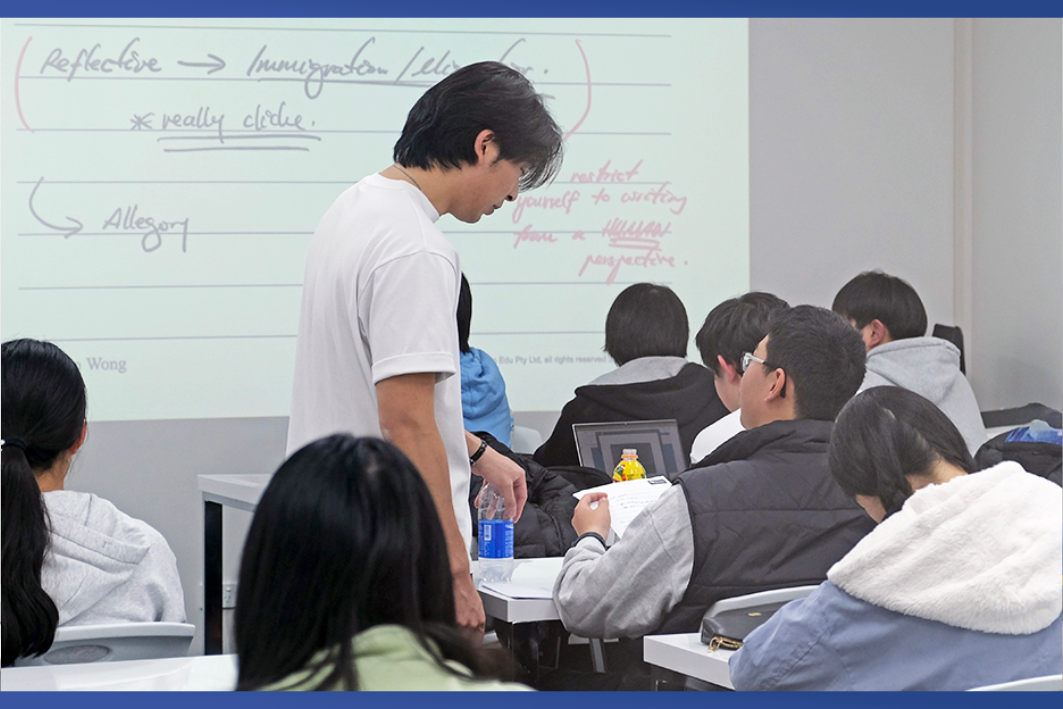 Reflective → Immigration /
* really cliche.
Allegory
restrict
yourself to writing
from a HUMAN
perspective.
Wong
Edu Pty Ltd, all rights reserved